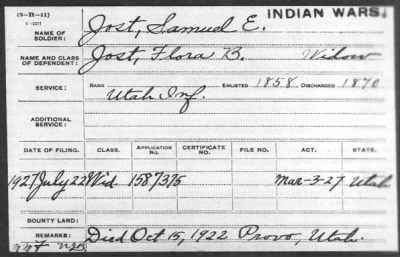 (3-21-11)
INDIAN WARS.
NAME OF SOLDIER: Jost, Samuel E.
NAME AND CLASS OF DEPENDENT: Jost, Flora B. Widow
SERVICE: RANK ENLISTED 1858 DISCHARGED 1870
Utah Inf.
ADDITIONAL SERVICE:
DATE OF FILING. CLASS. APPLICATION No. CERTIFICATE No. FILE NO. ACT. STATE.
1927 July 22 Wid. 1587375 Mar-3-27 Utah
BOUNTY LAND:
REMARKS: Died Oct 15, 1922 Provo, Utah.